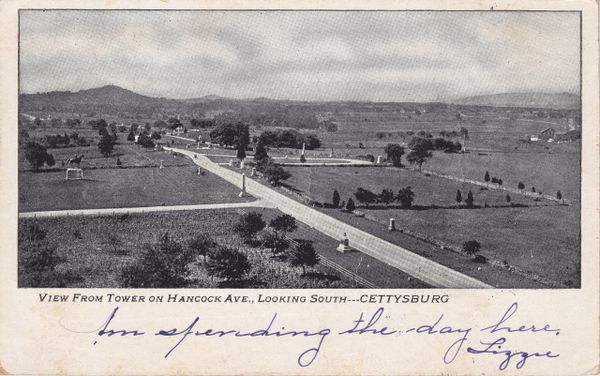 VIEW FROM TOWER ON HANCOCK AVE., LOOKING SOUTH---GETTYSBURG
Am spending the day here.
Lizzie